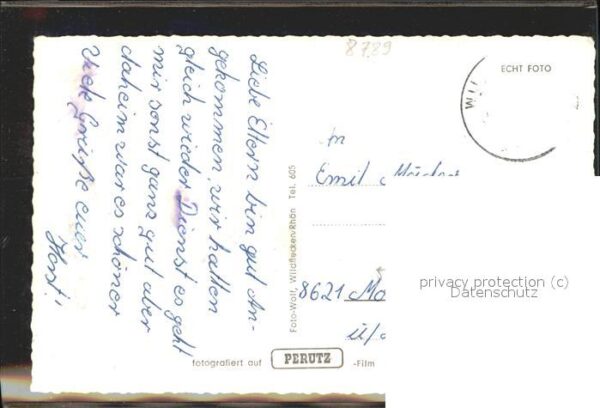 8789
Liebe Eltern bin gut An-
gekommen, wir hatten
gleich wieder Dienst es geht
mir sonst ganz gut aber
daheim war es schöner
Viele Grüße euer
Horst!
Foto-Wolf, Wildflecken/Rhön Tel. 605
ECHT FOTO
WIL
An
Emil
8621
fotografiert auf PERUTZ -Film
privacy protection (c)
Datenschutz